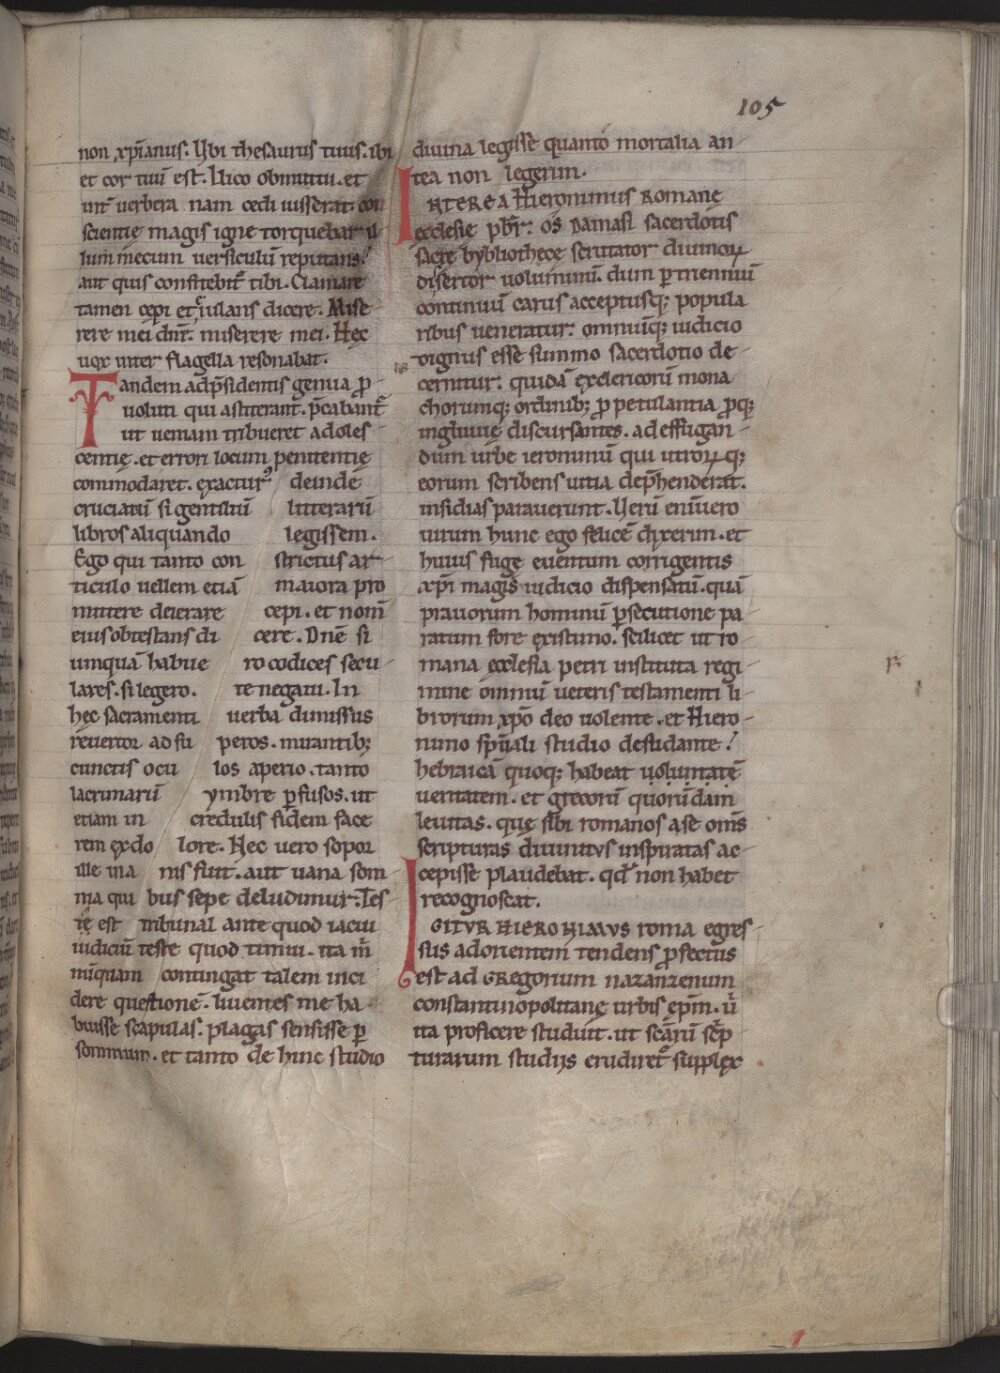 105
non xp̄ianus. Ubi thesaurus tuus. ibi
et cor tuū est. Ilico obmutui. et
int̄ uerbera nam cedi iusserat. con
scientię magis igne torquebar. il
lum mecum uersiculū reputans.
aut quis confitebit̄ tibi. Clamare
tamen cępi et eiulans dicere. Mise
rere mei dn̄e. miserere mei. Hęc
uox inter flagella resonabat.
Tandem ad p̄sidentis genua p̄
uoluti qui astiterant. p̄cabant̄
ut ueniam tribueret adoles
centię. et errori locum penitentię
commodaret. exacturꝰ deinde
cruciatū si gentiliū litterarū
libros aliquando legissem.
Ego qui tanto con strictus ar
ticulo uellem etiā maiora pro
mittere deierare cepi. et nom̄
eius obtestans di cere. Dn̄e si
umquā habue ro codices secu
lares. si legero. te negaui. In
hęc sacramenti uerba dimissus
reuertor ad su peros. mirantib;
cunctis ocu los aperio. tanto
lacrimarū ymbre p̄fusos. ut
etiam in credulis fidem face
rem ex do lore. Hęc uero sopor
ille ina nis fuit. aut uana som
nia qui bus sepe deludimur. Tes
tis est tribunal ante quod iacui
iudiciū teste quod timui. ita m̄
nūquam contingat talem inci
dere questionē. liuentes me ha
buisse scapulas. plagas sensisse p̄
somnium. et tanto de hinc studio
diuina legisse quanto mortalia an
tea non legerim.
INTEREA Hieronimus Romanę
ęcclesię pb̄r. os Damasi sacerdotis
sacrę bybliothece scrutator diuinoꝝ
disertor uoluminū. dum p̄ triennium
continuū carus acceptusq; popula
ribus ueneratur. omniūq; iudicio
dignus esse summo sacerdotio de
cernitur. quidā ex clericorū mona
chorumq; ordinib; p̄ petulantia p̄q;
ingluuię discursantes. ad effugan
dum urbe ieronimū qui utroꝝq;
eorum scribens uitia dep̄henderat.
insidias parauerunt. Uerū enimuero
uirum hunc ego felicē dixerim. et
huius fugę euentum corrigentis
xp̄i magis iudicio dispensatū. quā
prauorum hominū p̄secutione pa
ratum fore existimo. scilicet ut ro
mana ęcclesia petri instituta regi
mine omniū ueteris testamenti li
brorum xp̄o deo uolente. et Hiero
nimo sp̄uali studio desudante
hebraicā quoq; habeat uoluntatē
ueritatem. et grecorū quorundam
leuitas. que sibi romanos a se om̄s
scripturas diuinitus inspiratas ac
cepisse plaudebat. qd̄ non habet
recognoscat.
IGITUR HIERONIMUS roma egres
sus ad orientem tendens p̄fectus
est ad GREGORIUM nazanzenum
constantinopolitanę urbis ep̄m. u̇
ita proficere studuit. ut scārū sc̄p
turarum studiis erudiret̄ supplex